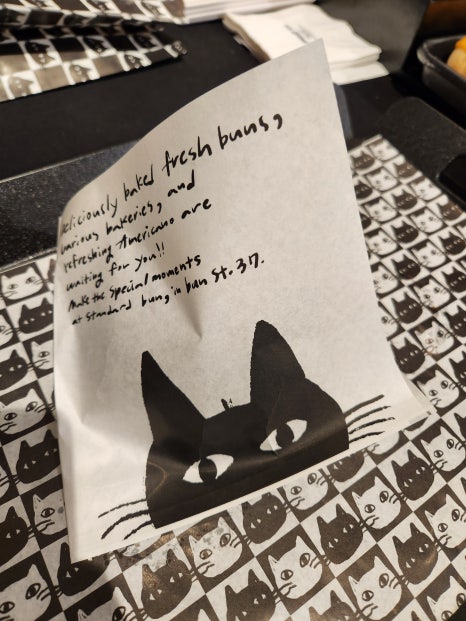 deliciously baked fresh buns,
various bakeries, and
refreshing Americano are
waiting for you!!
Make the special moments
at standard bun, in bun St. 37.